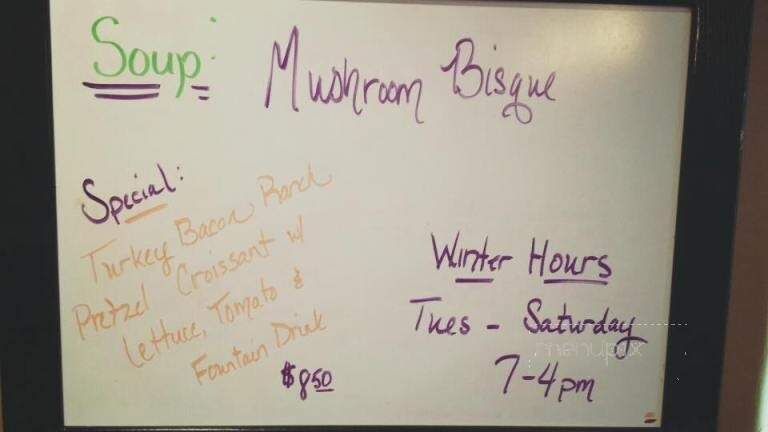 Soup: Mushroom Bisque
Special:
Turkey Bacon Ranch
Pretzel Croissant w/
Lettuce, Tomato &
Fountain Drink
$8.50
Winter Hours
Tues - Saturday
7-4pm
menupix